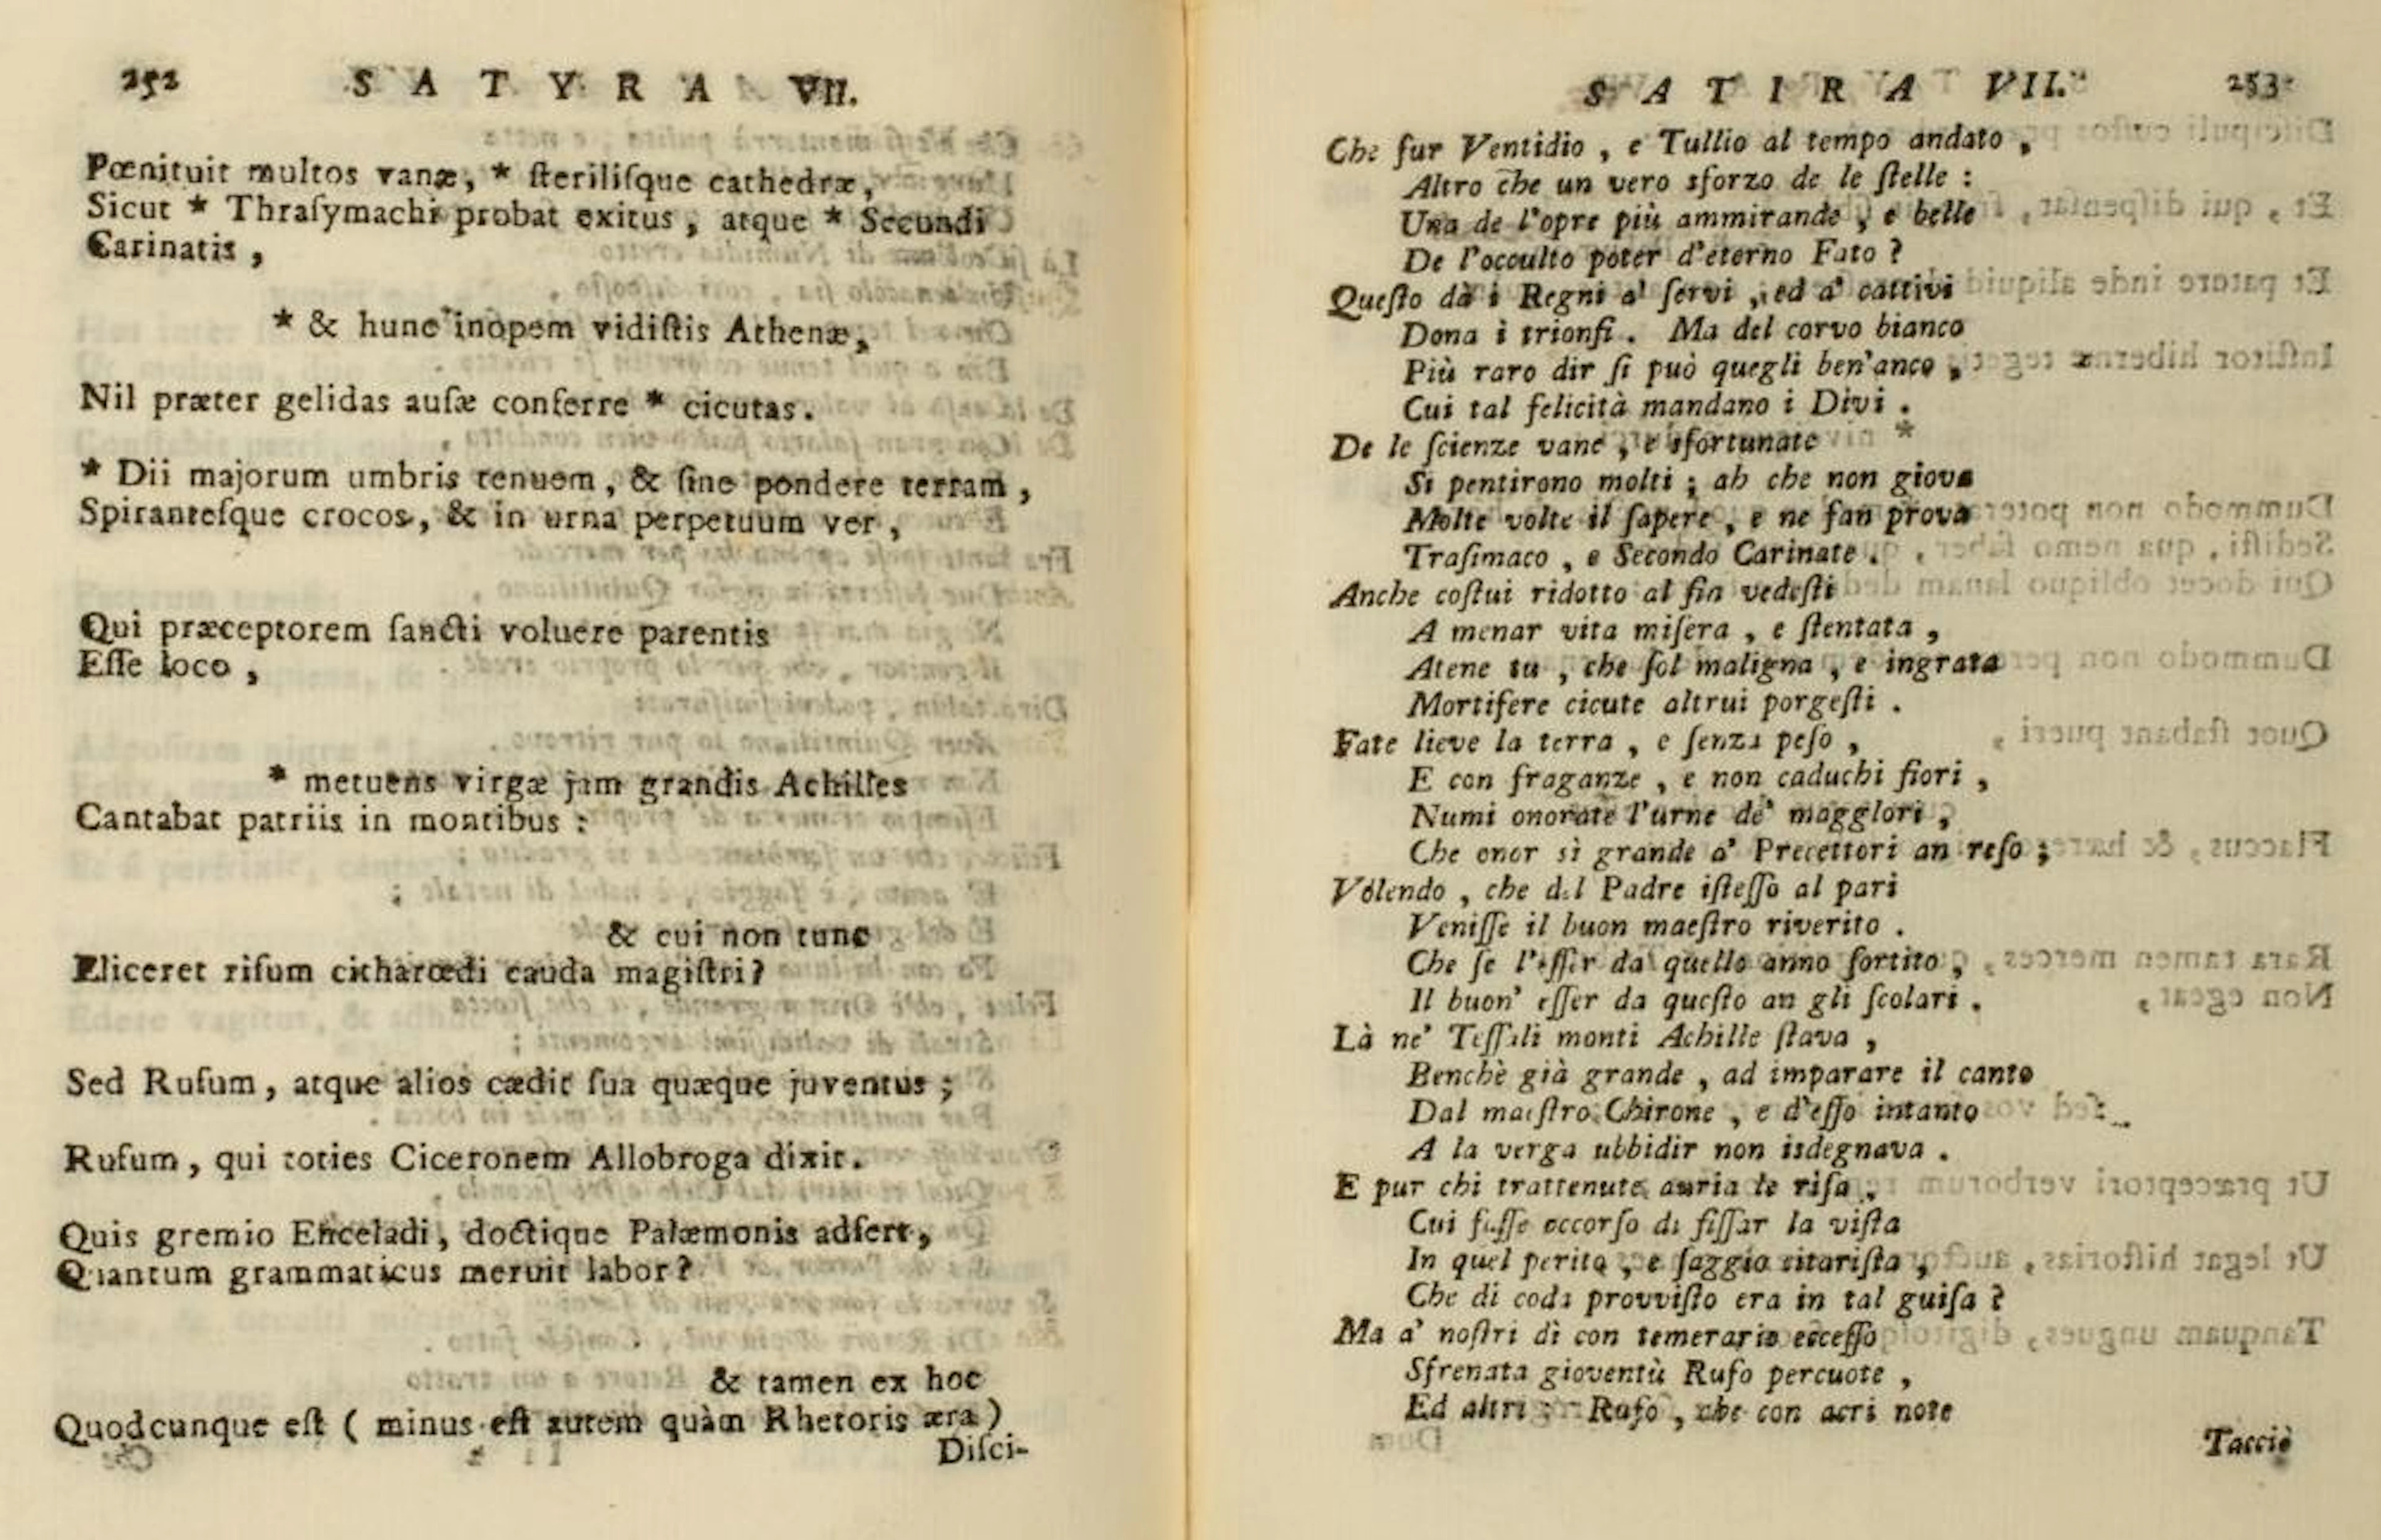 252 SATYRA VII.
Pœnituit multos vanæ, * ſteriliſque cathedræ,
Sicut * Thraſymachi probat exitus, atque * Secundi
Carinatis,
* & hunc inopem vidiſtis Athenæ,
Nil præter gelidas auſæ conferre * cicutas.
* Dii majorum umbris tenuem, & ſine pondere terram,
Spiranteſque crocos, & in urna perpetuum ver,
Qui præceptorem ſancti voluere parentis
Eſſe loco,
* metuens virgæ jam grandis Achilles
Cantabat patriis in montibus:
& cui non tunc
Eliceret riſum citharœdi cauda magiſtri?
Sed Rufum, atque alios cædit ſua quæque juventus;
Rufum, qui toties Ciceronem Allobroga dixit.
Quis gremio Enceladi, doctique Palæmonis adfert,
Quantum grammaticus meruit labor?
& tamen ex hoc
Quodcunque eſt (minus eſt autem quàm Rhetoris æra)
Diſci-
SATIRA VII. 253
Che fur Ventidio, e Tullio al tempo andato,
Altro che un vero sforzo de le ſtelle:
Una de l'opre più ammirande, e belle
De l'occulto poter d'eterno Fato?
Queſto dà i Regni a' ſervi, ed a' cattivi
Dona i trionfi. Ma del corvo bianco
Più raro dir ſi può quegli ben'anco,
Cui tal felicità mandano i Divi.
De le ſcienze vane, e sfortunate *
Si pentirono molti; ah che non giova
Molte volte il ſapere, e ne fan prova
Traſimaco, e Secondo Carinate.
Anche coſtui ridotto al fin vedeſti
A menar vita miſera, e ſtentata,
Atene tu, che ſol maligna, e ingrata
Mortifere cicute altrui porgeſti.
Fate lieve la terra, e ſenza peſo,
E con fraganze, e non caduchi fiori,
Numi onorate l'urne de' magglori,
Che onor sì grande a' Precettori an reſo;
Volendo, che del Padre iſteſſo al pari
Veniſſe il buon maeſtro riverito.
Che ſe l'eſſer da quello anno ſortito,
Il buon' eſſer da queſto an gli ſcolari.
Là ne' Teſſali monti Achille ſtava,
Benchè già grande, ad imparare il canto
Dal maeſtro Chirone, e d'eſſo intanto
A la verga ubbidir non isdegnava.
E pur chi trattenute auria le riſa,
Cui fuſſe occorſo di fiſſar la viſta
In quel perito, e ſaggio citariſta,
Che di coda provviſto era in tal guiſa?
Ma a' noſtri dì con temerario ecceſſo
Sfrenata gioventù Rufo percuote,
Ed altri: Rufo, che con acri note
Tacciò